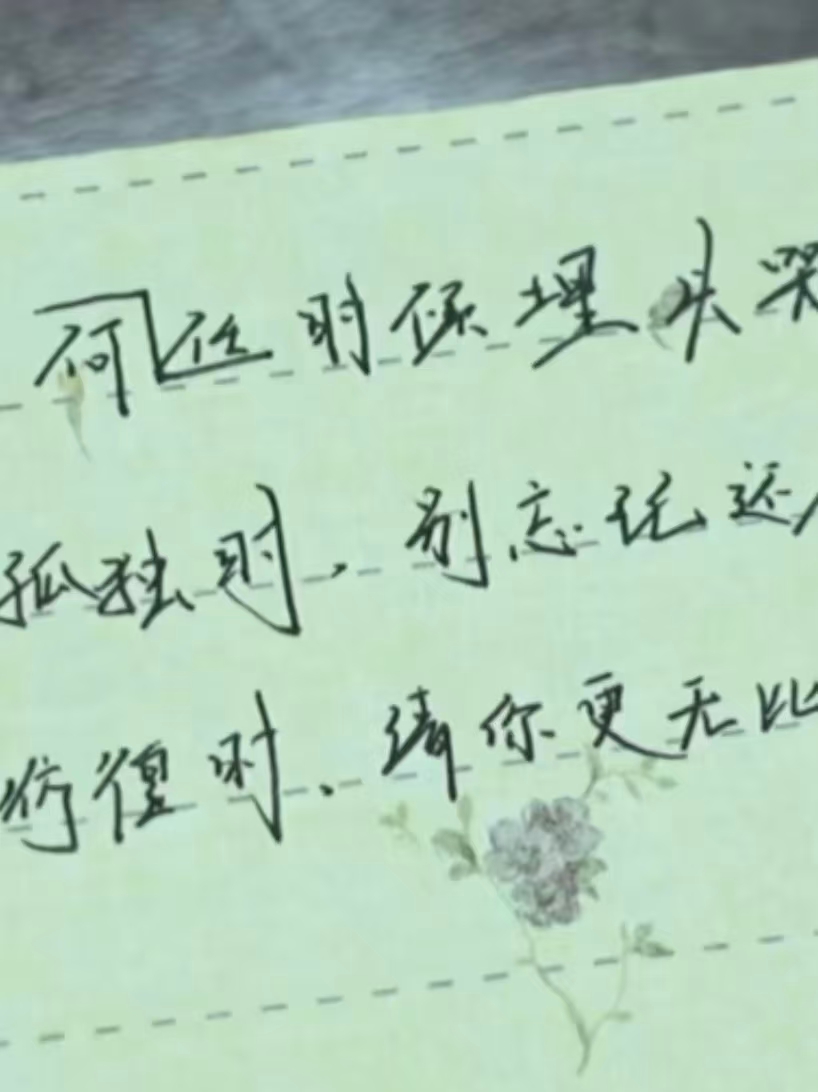 何任时候埋头哭
孤独时,别忘记还
彷徨时、请你更无比